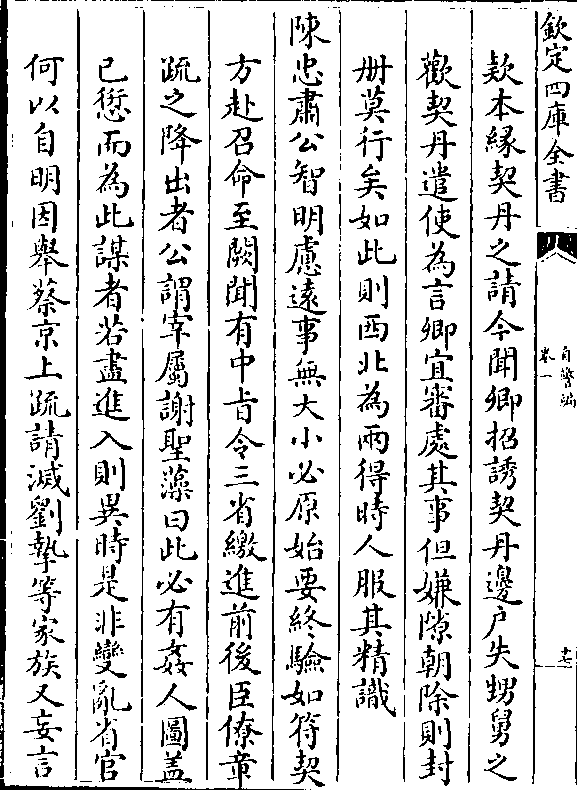 欽定四庫全書
自警編
卷一
十七
欵本縁契丹之請今聞卿招誘契丹邊户失甥舅之
歡契丹遣使為言卿宜審處其事但嫌隙朝除則封
冊莫行矣如此則西北為兩得時人服其精識
陳忠肅公智明慮遠事無大小必原始要終驗如符契
方赴召命至闕聞有中旨令三省繳進前後臣僚章
疏之降出者公謂宰屬謝聖藻曰此必有姦人圖蓋
已愆而為此謀者若盡進入則異時是非變亂省官
何以自明因舉蔡京上疏請滅劉摯等家族又妄言